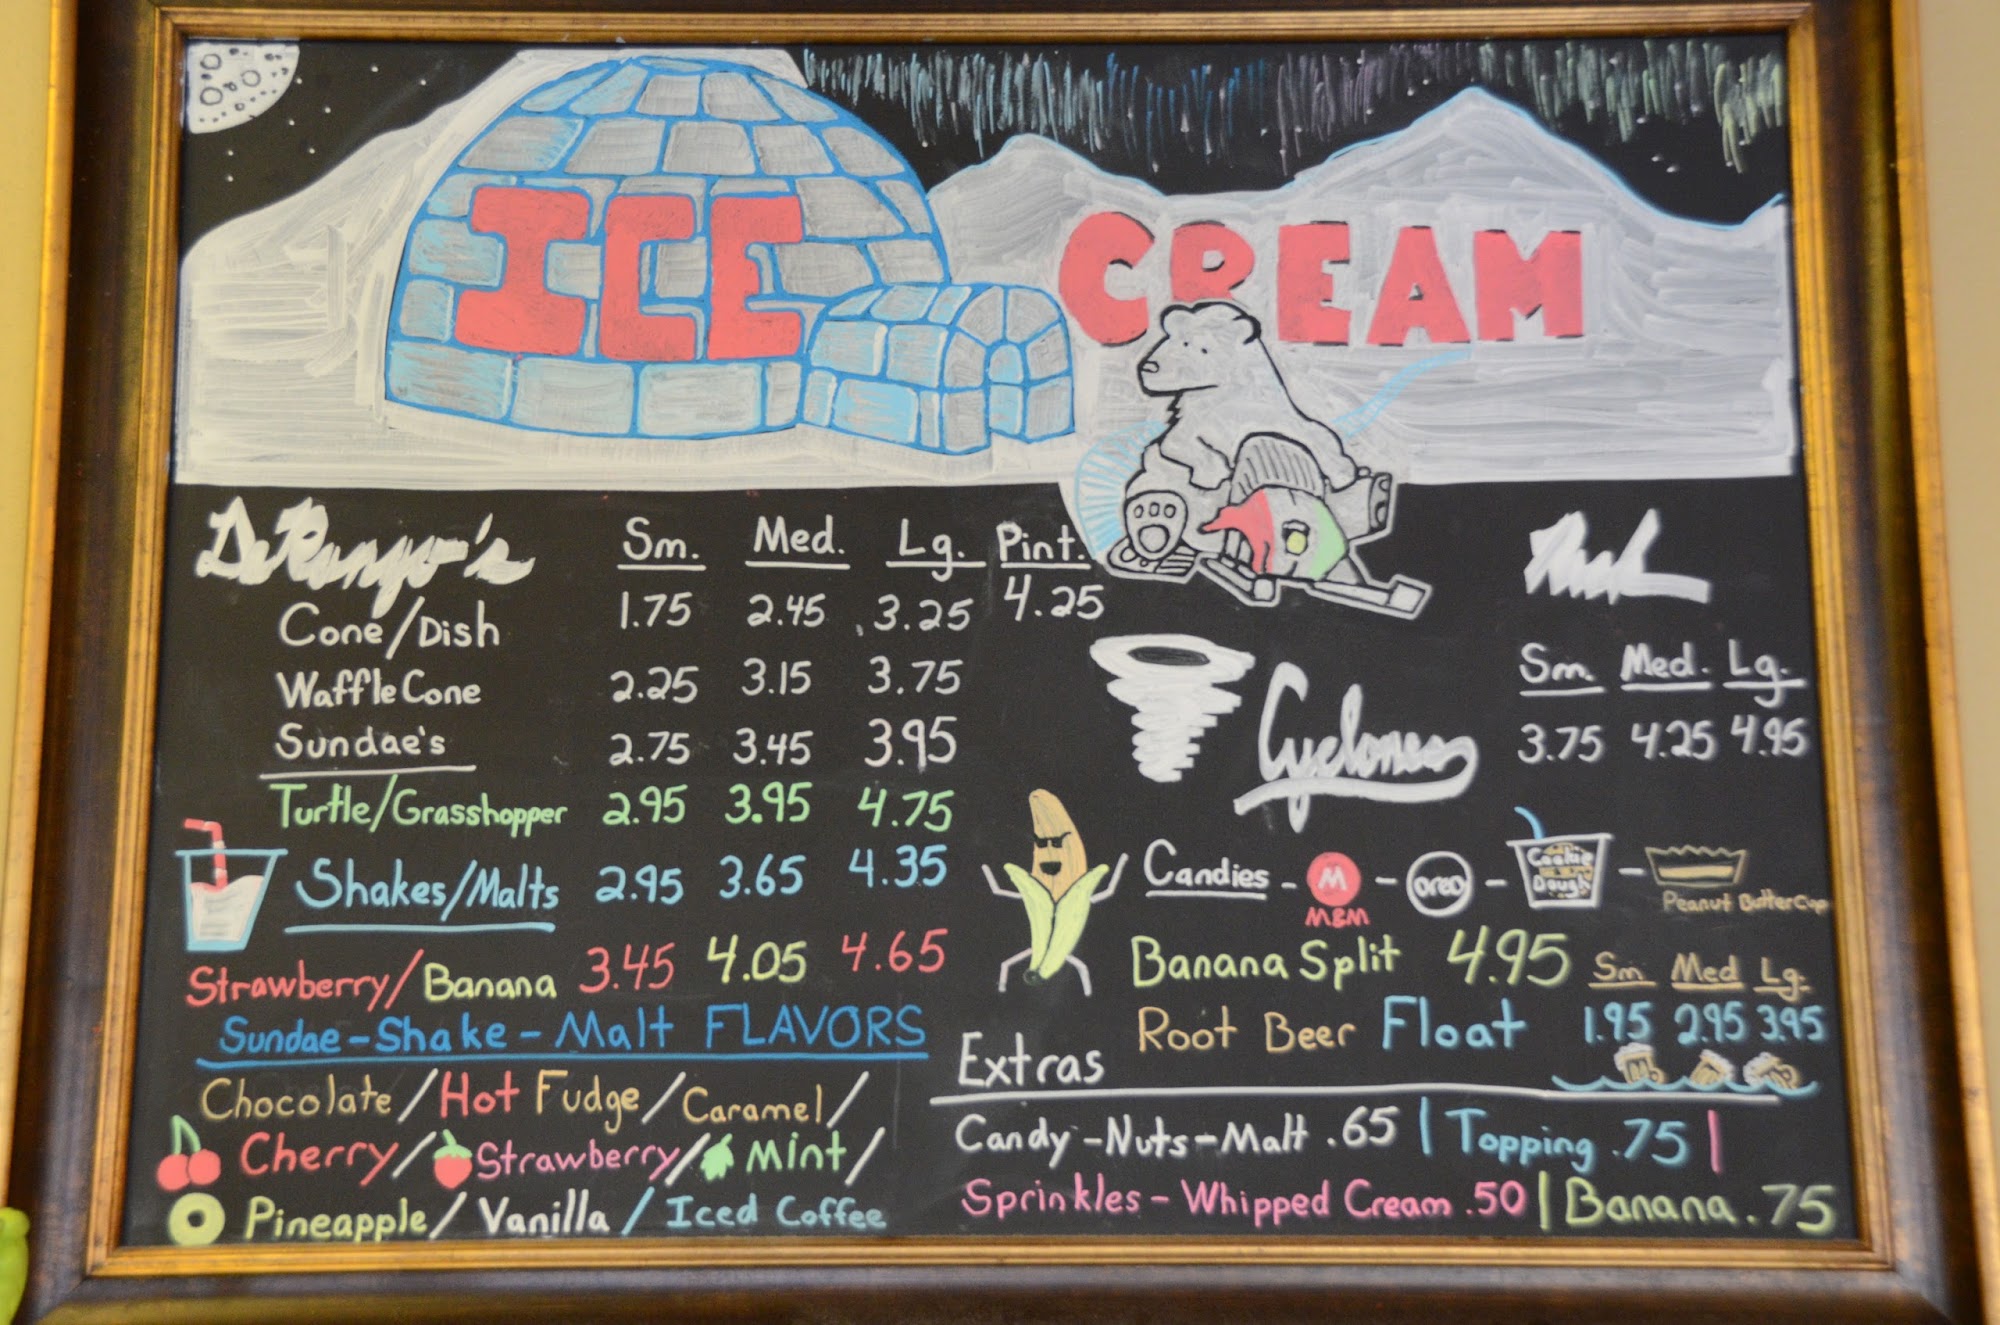 ICE CREAM
DeRango's Sm. Med. Lg. Pint.
Cone/Dish 1.75 2.45 3.25 4.25
Waffle Cone 2.25 3.15 3.75
Sundae's 2.75 3.45 3.95
Turtle/Grasshopper 2.95 3.95 4.75
Shakes/Malts 2.95 3.65 4.35
Strawberry/Banana 3.45 4.05 4.65
Sundae-Shake-Malt FLAVORS
Chocolate/Hot Fudge/Caramel/
Cherry/Strawberry/Mint/
Pineapple/Vanilla/Iced Coffee
Sm. Med. Lg.
Cyclones 3.75 4.25 4.95
Candies - M - OREO - Cookie Dough - Peanut Butter Cup
M&M
Banana Split 4.95
Sm Med Lg.
Root Beer Float 1.95 2.95 3.95
Extras
Candy-Nuts-Malt .65 | Topping .75 |
Sprinkles-Whipped Cream .50 | Banana .75